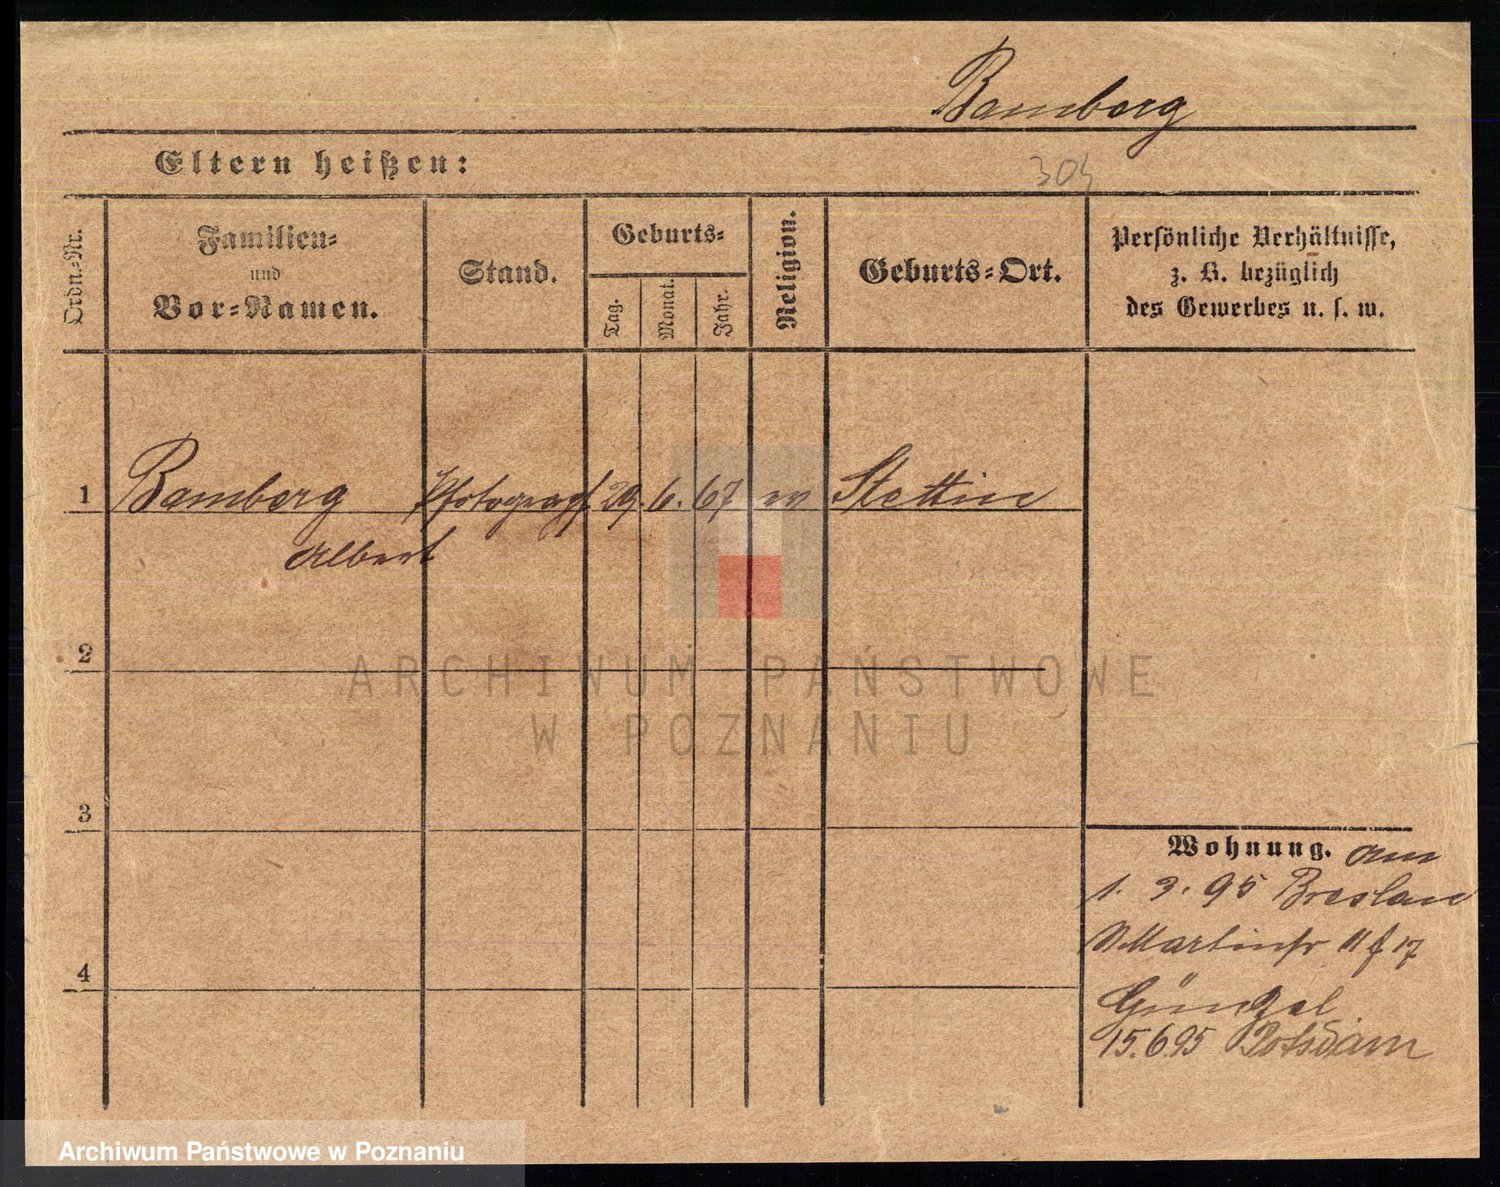 Bamberg
Eltern heißen:
304
Ordn.-Nr.
Familien-
und
Vor-Namen.
Stand.
Geburts-
Tag.
Monat.
Jahr.
Religion.
Geburts-Ort.
Persönliche Verhältnisse,
z. B. bezüglich
des Gewerbes u. s. w.
1 Bamberg Photograph 29. 6. 67 ev Stettin
Albert
2
ARCHIWUM PAŃSTWOWE
W POZNANIU
3
Wohnung. am
1. 3. 95 Breslau
St. Martinstr 11 f 17
Günzel
15.6.95 Potsdam
4
Archiwum Państwowe w Poznaniu